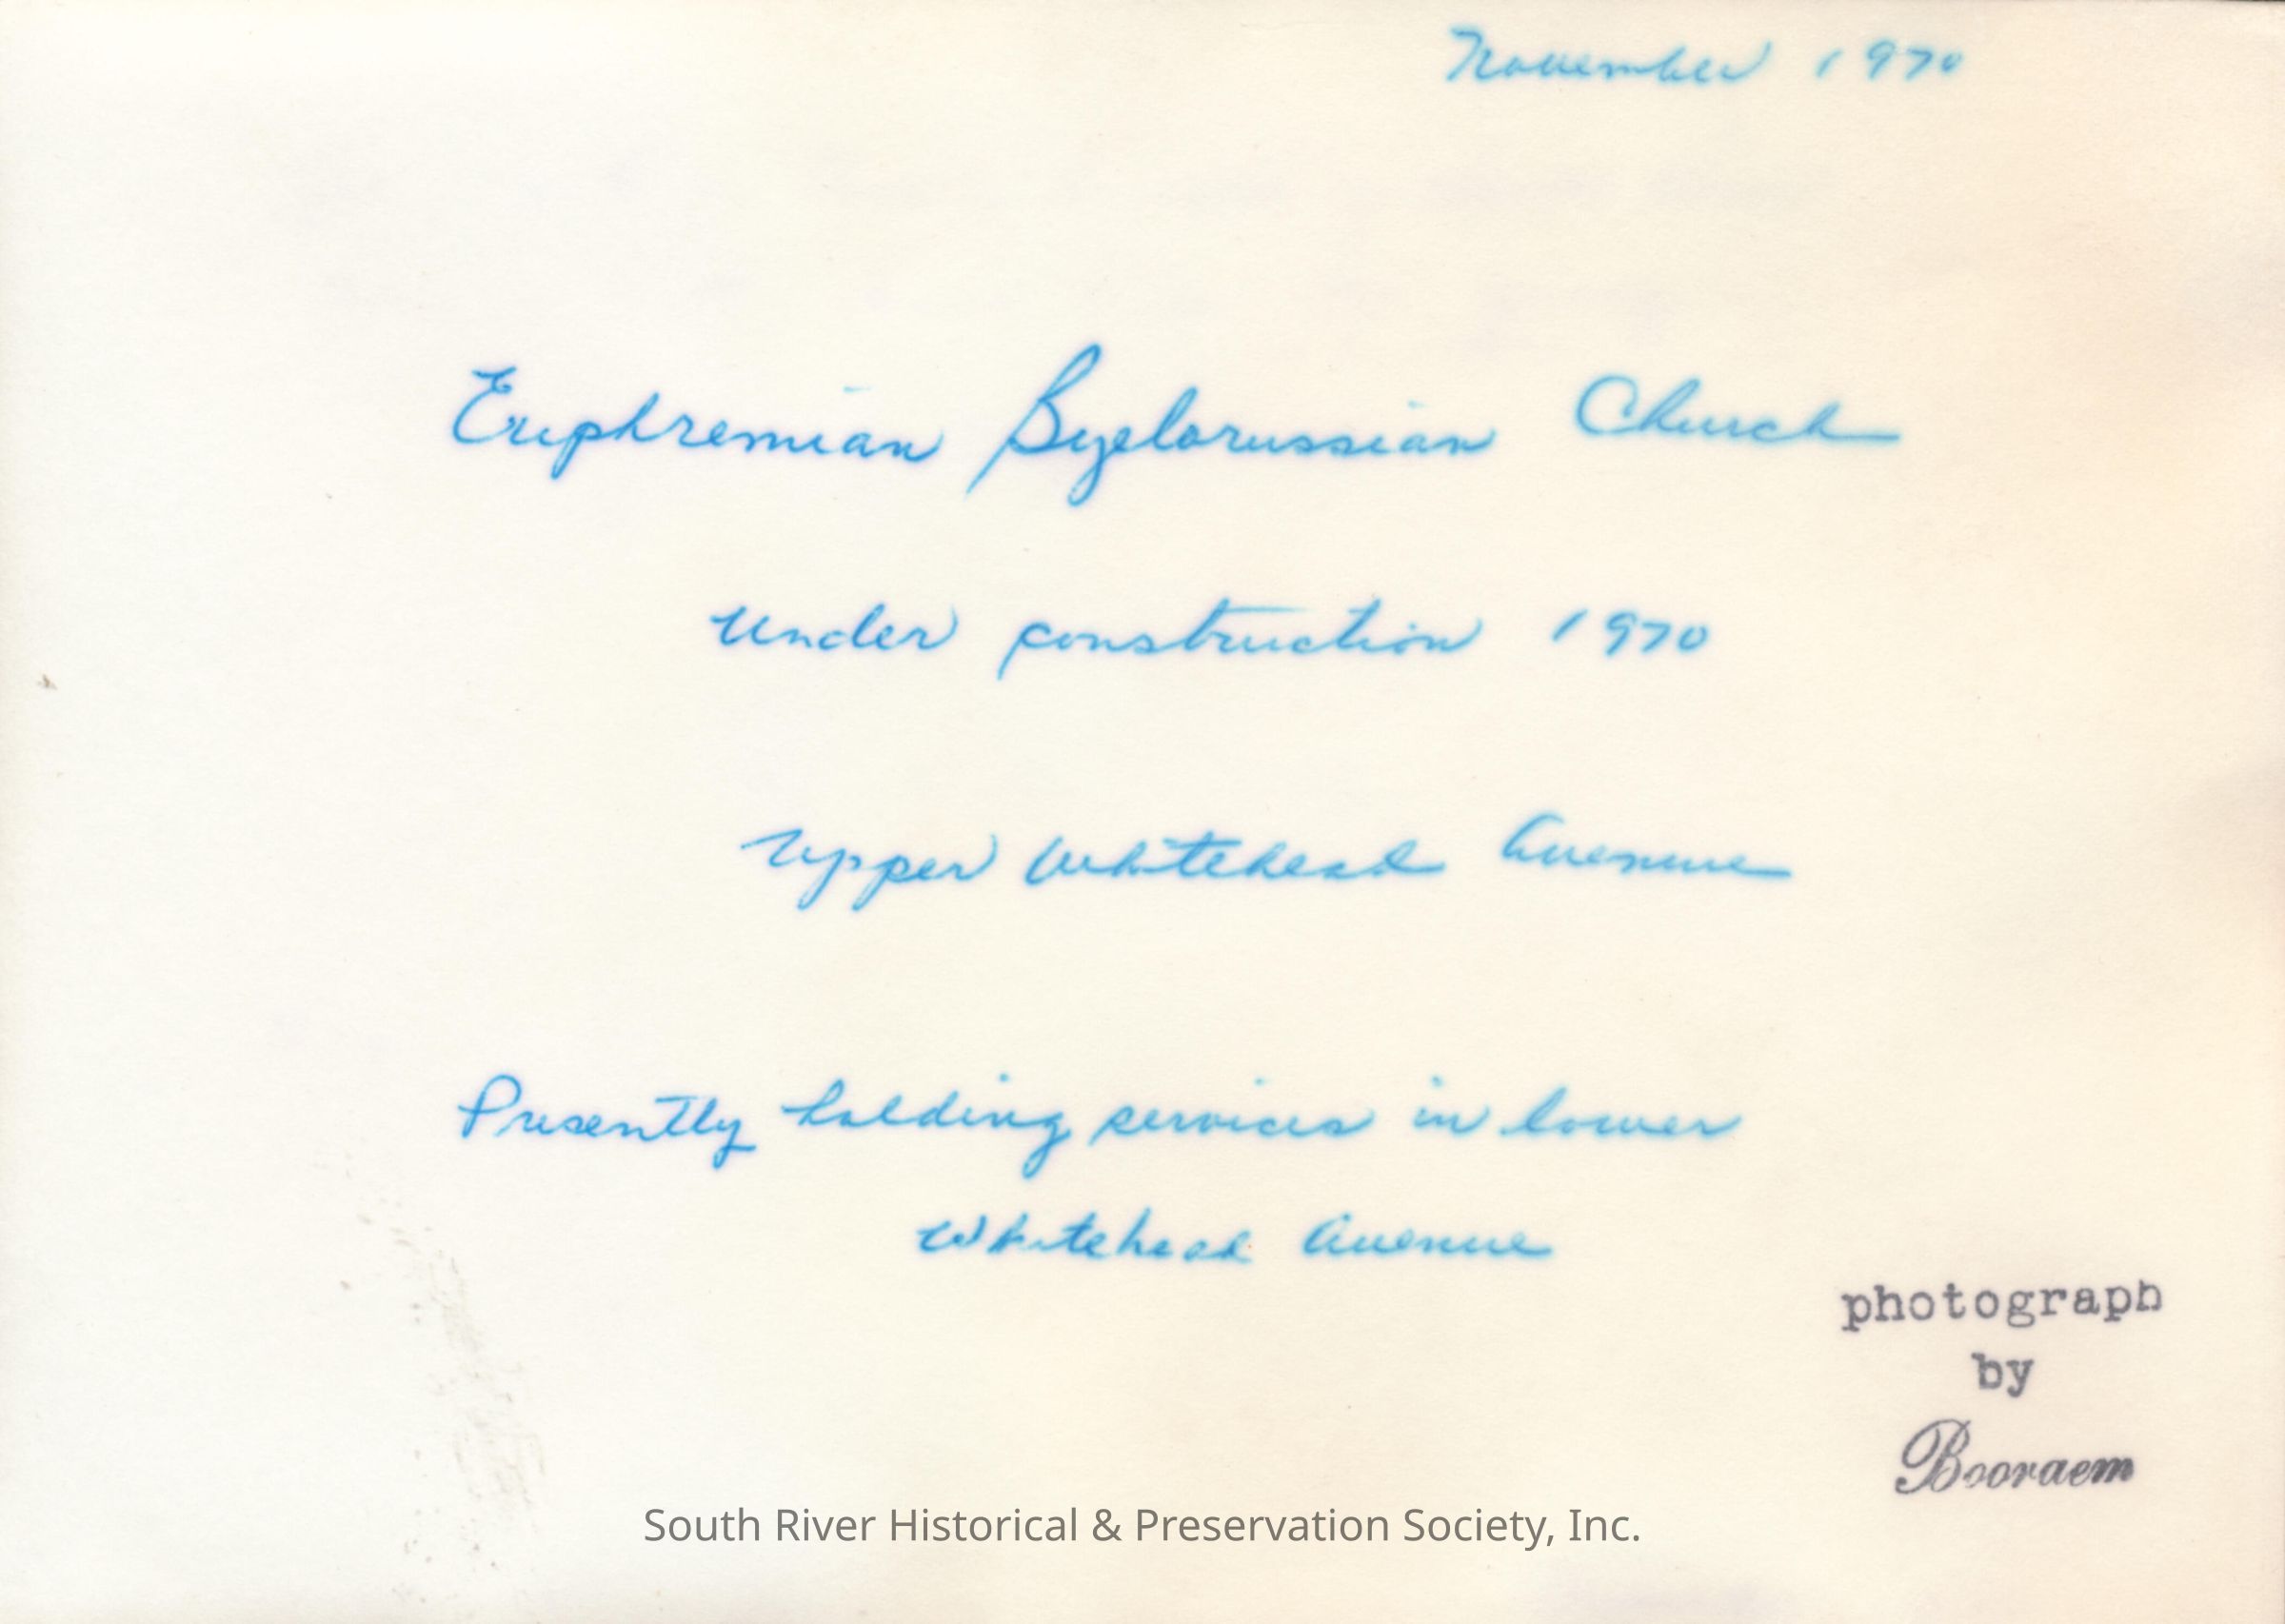 November 1970
Euphremian Byelorussian Church
Under construction 1970
Upper Whitehead Avenue
Presently holding services in lower
Whitehead Avenue
photograph
by
Booraem
South River Historical & Preservation Society, Inc.